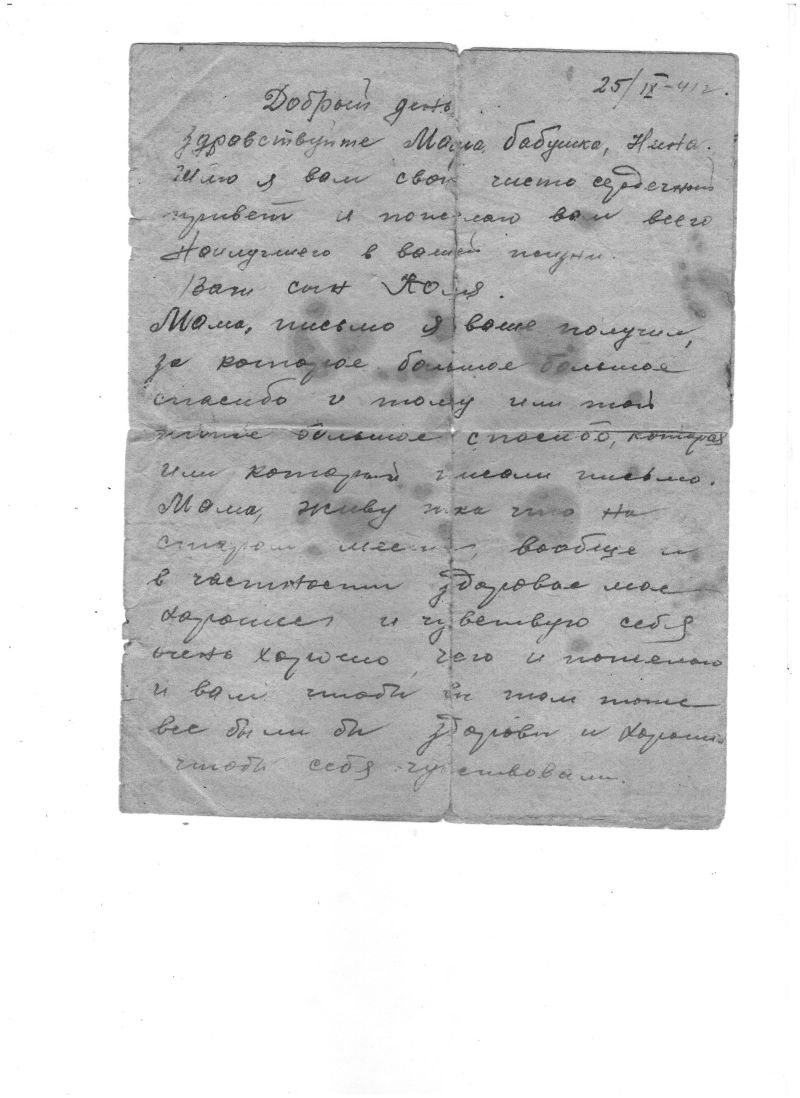 25/IX-41г.
Добрый день.
Здравствуйте Мама, бабушка, Нина.
Шлю я вам свой чисто сердечный
привет и пожелаю вам всего
Наилучшего в вашей жизни.
Ваш сын Коля.
Мама, письмо я ваше получил,
за которое большое большое
спасибо и тому или той
тоже большое спасибо, которая
или который писали письмо.
Мама, живу пока что на
старом месте, вообще и
в частности здоровье мое
хорошее и чувствую себя
очень хорошо, чего и пожелаю
и вам чтобы вы там тоже
все были бы здоровы и хорошо
чтобы себя чувствовали.